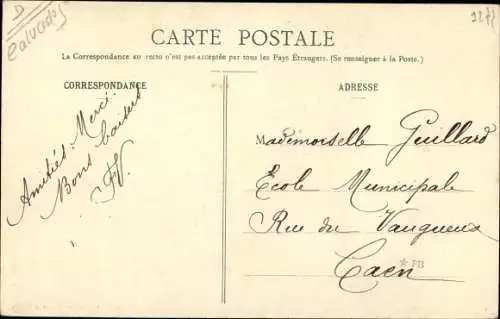 D
Calvados
1277
CARTE POSTALE
La Correspondance au recto n'est pas acceptée par tous les Pays Étrangers. (Se renseigner à la Poste.)
CORRESPONDANCE
ADRESSE
Amitiés. Merci.
Bons baisers
FV.
Mademoiselle Guillard
École Municipale
Rue du Vaugueux
Caen
* PB